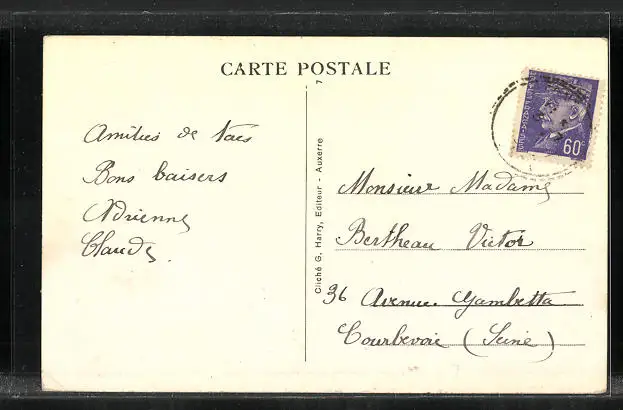 CARTE POSTALE
7
Amitiés de tous
Bons baisers
Adrienne
Claude
Cliché G. Harry, Editeur - Auxerre
60c
Monsieur Madame
Bertheau Victor
36 Avenue Gambetta
Courbevoie (Seine)